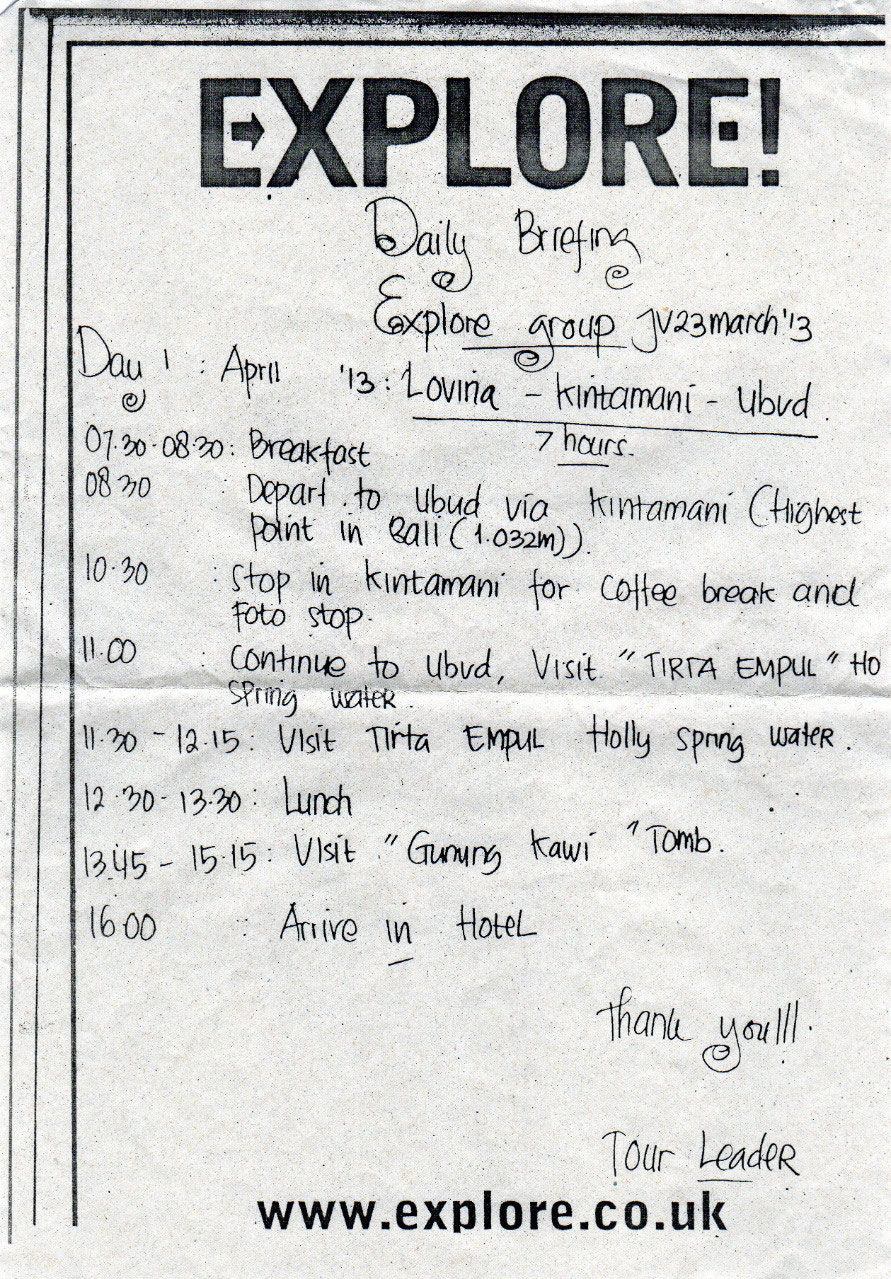 EXPLORE!
Daily Briefing
Explore group JV23march'13
Day 1 : April '13 : Lovina - Kintamani - Ubud
7 hours.
07.30-08.30 : Breakfast
08.30 : Depart to Ubud via Kintamani (Highest
Point in Bali (1.032m)).
10.30 : Stop in Kintamani for Coffee break and
Foto stop.
11.00 : Continue to Ubud, Visit "TIRTA EMPUL" HO
Spring water.
11.30 - 12.15 : Visit Tirta EMPUL Holly Spring water.
12.30-13.30 : Lunch
13.45 - 15.15 : Visit "Gunung Kawi" Tomb.
16.00 : Arrive in Hotel
Thank you!!!.
Tour Leader
www.explore.co.uk